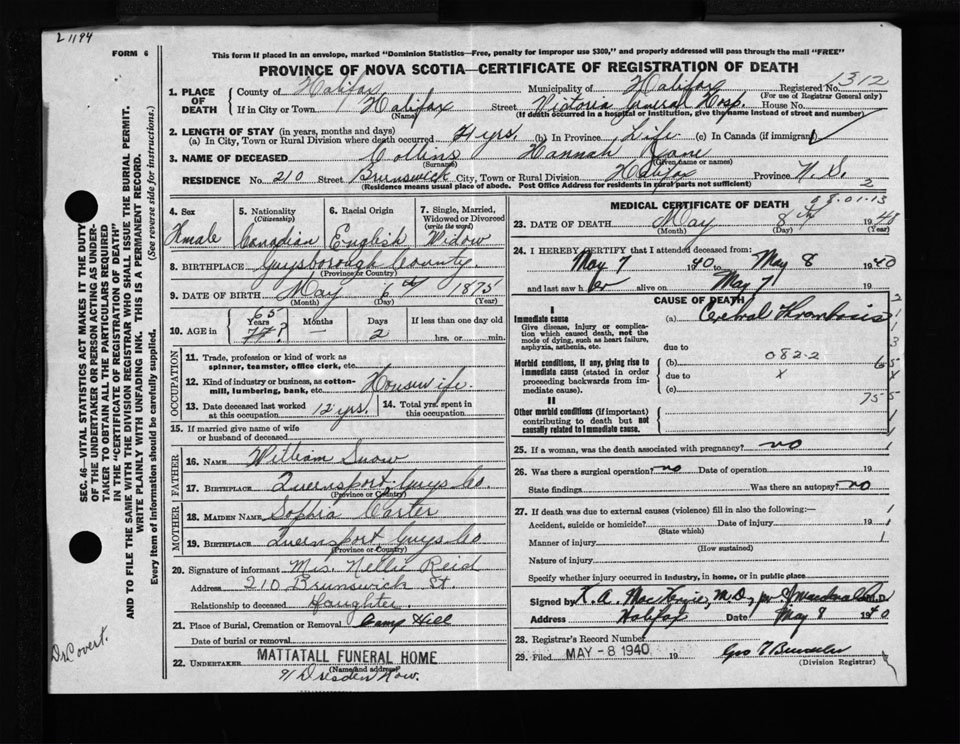 L 1194
FORM 6
This form if placed in an envelope, marked "Dominion Statistics—Free, penalty for improper use $300," and properly addressed will pass through the mail "FREE"
PROVINCE OF NOVA SCOTIA—CERTIFICATE OF REGISTRATION OF DEATH
1. PLACE OF DEATH
County of Halifax Municipality of Halifax Registered No. 1312
(For use of Registrar General only)
If in City or Town Halifax Street Victoria General Hosp. House No.
(Name) (If death occurred in a hospital or institution, give the name instead of street and number)
2. LENGTH OF STAY (in years, months and days)
(a) In City, Town or Rural Division where death occurred 4 yrs. (b) In Province Life (c) In Canada (if immigrant)
3. NAME OF DECEASED Collins Hannah Jane
(Surname) (Given name or names)
RESIDENCE No. 210 Street Brunswick City, Town or Rural Division Halifax Province N.S.
(Residence means usual place of abode. Post Office Address for residents in rural parts not sufficient)
2
4. Sex Female
5. Nationality (Citizenship) Canadian
6. Racial Origin English
7. Single, Married, Widowed or Divorced (write the word) Widow
8. BIRTHPLACE Guysborough County.
(Province or Country)
9. DATE OF BIRTH May 6th 1875
(Month) (Day) (Year)
10. AGE in 65 Years 77? Months — Days 2 If less than one day old hrs. or min.
OCCUPATION
11. Trade, profession or kind of work as spinner, teamster, office clerk, etc.
12. Kind of industry or business, as cotton-mill, lumbering, bank, etc. Housewife.
13. Date deceased last worked at this occupation 12 yrs.
14. Total yrs. spent in this occupation.
15. If married give name of wife or husband of deceased
FATHER
16. NAME William Snow
17. BIRTHPLACE Queensport Guys Co.
(Province or Country)
MOTHER
18. MAIDEN NAME Sophia Carter
19. BIRTHPLACE Queensport Guys Co
(Province or Country)
20. Signature of informant Mrs. Nellie Reid
Address 210 Brunswick St
Relationship to deceased Daughter.
21. Place of Burial, Cremation or Removal Camp Hill
Date of burial or removal
22. UNDERTAKER MATTATALL FUNERAL HOME
(Name and address)
91 Dresden Row.
MEDICAL CERTIFICATE OF DEATH
08.01.13
23. DATE OF DEATH May 8th 1940
(Month) (Day) (Year)
24. I HEREBY CERTIFY that I attended deceased from:
May 7 1940 to May 8 1940
and last saw her alive on May 7 19
CAUSE OF DEATH
I
Immediate cause
Give disease, injury or complication which caused death, not the mode of dying, such as heart failure, asphyxia, asthenia, etc.
(a) Cerebral Thrombosis
due to
Morbid conditions, if any, giving rise to immediate cause (stated in order proceeding backwards from immediate cause).
(b) 082-2
due to x
(c)
II
Other morbid conditions (important) contributing to death but not causally related to immediate cause.
25. If a woman, was the death associated with pregnancy? no
26. Was there a surgical operation? no Date of operation 19
State findings Was there an autopsy? no
27. If death was due to external causes (violence) fill in also the following:—
Accident, suicide or homicide? Date of injury 19
(State which)
Manner of injury
(How sustained)
Nature of injury
Specify whether injury occurred in industry, in home, or in public place
Signed by K. A. MacKenzie, M.D., per M.D.
Address Halifax Date May 8 1940
28. Registrar's Record Number
29. Filed MAY - 8 1940 19
(Division Registrar)
SEC. 46—VITAL STATISTICS ACT MAKES IT THE DUTY
OF THE UNDERTAKER OR PERSON ACTING AS UNDER-
TAKER TO OBTAIN ALL THE PARTICULARS REQUIRED
IN THE "CERTIFICATE OF REGISTRATION OF DEATH"
AND TO FILE THE SAME WITH THE DIVISION REGISTRAR WHO SHALL ISSUE THE BURIAL PERMIT.
WRITE PLAINLY WITH UNFADING INK. THIS IS A PERMANENT RECORD.
Every item of information should be carefully supplied. (See reverse side for instructions.)
Dr Covert.